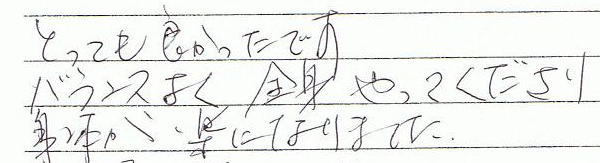 とっても良かったです
バランスよく全身やってくださり
身体が楽になりました.